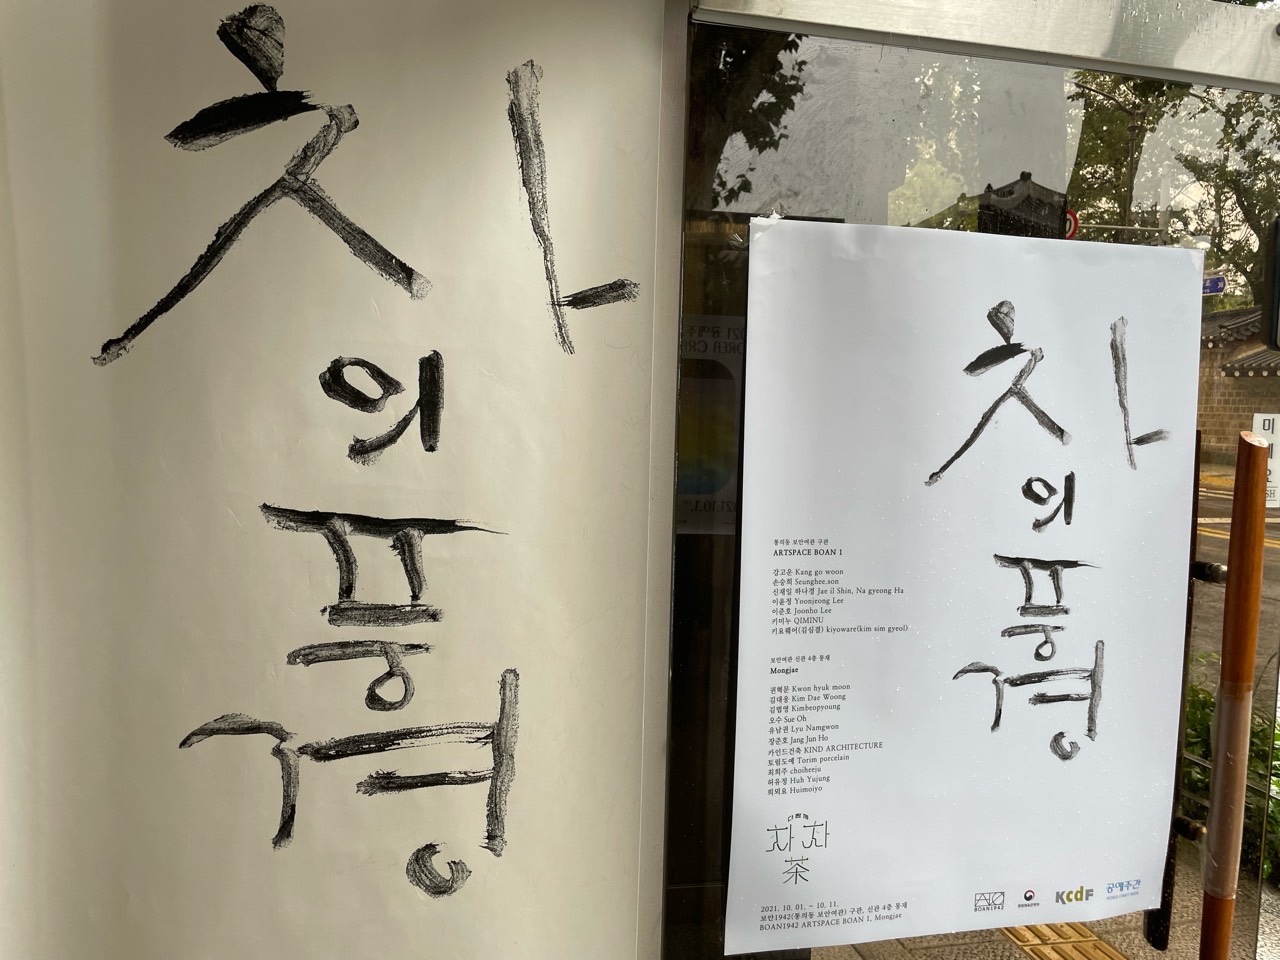 차
의
풍
경
차
의
풍
경
통의동 보안여관 구관
ARTSPACE BOAN 1
강고운 Kang go woon
손승희 Seunghee.son
신재일 하나경 Jae il Shin, Na gyeong Ha
이윤정 Yoonjeong Lee
이준호 Joonho Lee
키미누 QIMINU
키요웨어(김심결) kiyoware(kim sim gyeol)
보안여관 신관 4층 몽재
Mongjae
권혁문 Kwon hyuk moon
김대웅 Kim Dae Woong
김법영 Kimbeopyoung
오수 Sue Oh
유남권 Lyu Namgwon
장준호 Jang Jun Ho
카인드건축 KIND ARCHITECTURE
토림도예 Torim porcelain
최희주 choiheeju
허유정 Huh Yujung
희뫼요 Huimoiyo
다함께
차차
茶
2021. 10. 01. ~ 10. 11.
보안1942(통의동 보안여관) 구관, 신관 4층 몽재
BOAN1942 ARTSPACE BOAN 1, Mongjae
BOAN1942
문화체육관광부
KCDF
공예주간
미